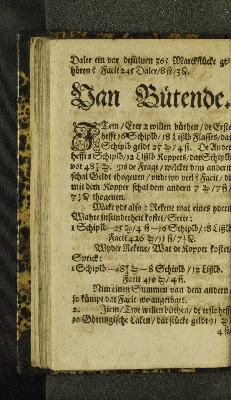 Daler ein vor desülven 365 Marckstücke ge-
hören? Facit 245 Daler/8 ß/3 ₰.
Van Bütende.
ITem/Erer 2 willen büthen/de Erste
hefft 16 Schiplb/18 Lißlb Flasses/dat
Schiplb geldt 25 /4 ß. De Ander
hefft 8 Schiplb/12 Lißlb Koppers/dat Schiplb
vor 48 Js de Frage/welcker dem andern
schal Geldt thogeven/unde wo veel? Facit/de
mit dem Kopper schal dem andern 7 /7 ß/
thogeven.
Make ydt also: Rekene wat eines ydern
Wahre insünderheit kostet/Sette:
1 Schiplb—25 /4 ß—16 Schiplb/18 Lißlb
Facit 426
Wyder Rekene/Wat de Kopper kostet/
Sprick:
1 Schiplb—48 —8 Schiplb/12 Lißlb.
Facit 419 /4 ß.
Nim einen Summen van dem andern/
so kümpt dat Facit/wo angetöget.
2. Item/Twe willen büthen/de erste hefft
30 Göttingische Laken/dat stücke geldt